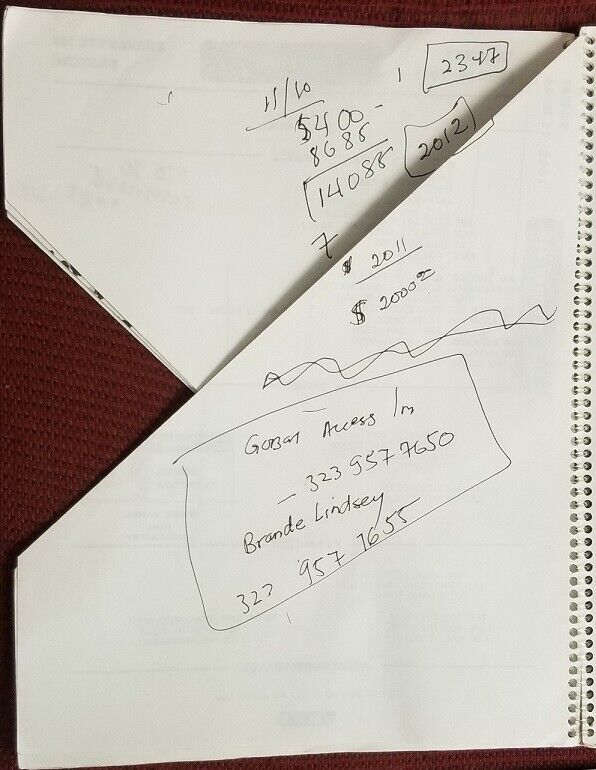 1 2347
11/10
5400-
8685
14085
2012
7
$ 2011
$ 2000
Gorsan Access In
- 323 957 7650
Brande Lindsey
323 957 7655